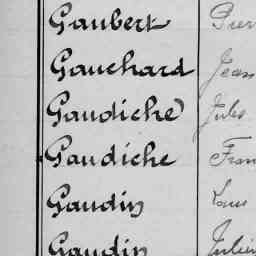 Gaubert Pier
Gauchard Jean
Gaudiche Jules
Gaudiche Fran
Gaudin Louis
Gaudin Julien